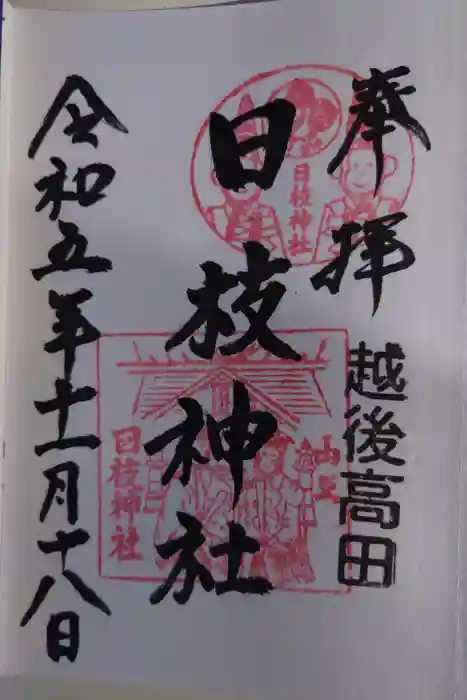 奉拝
越後高田
日枝神社
日枝神社
日枝神社
山王
令和五年十一月十八日